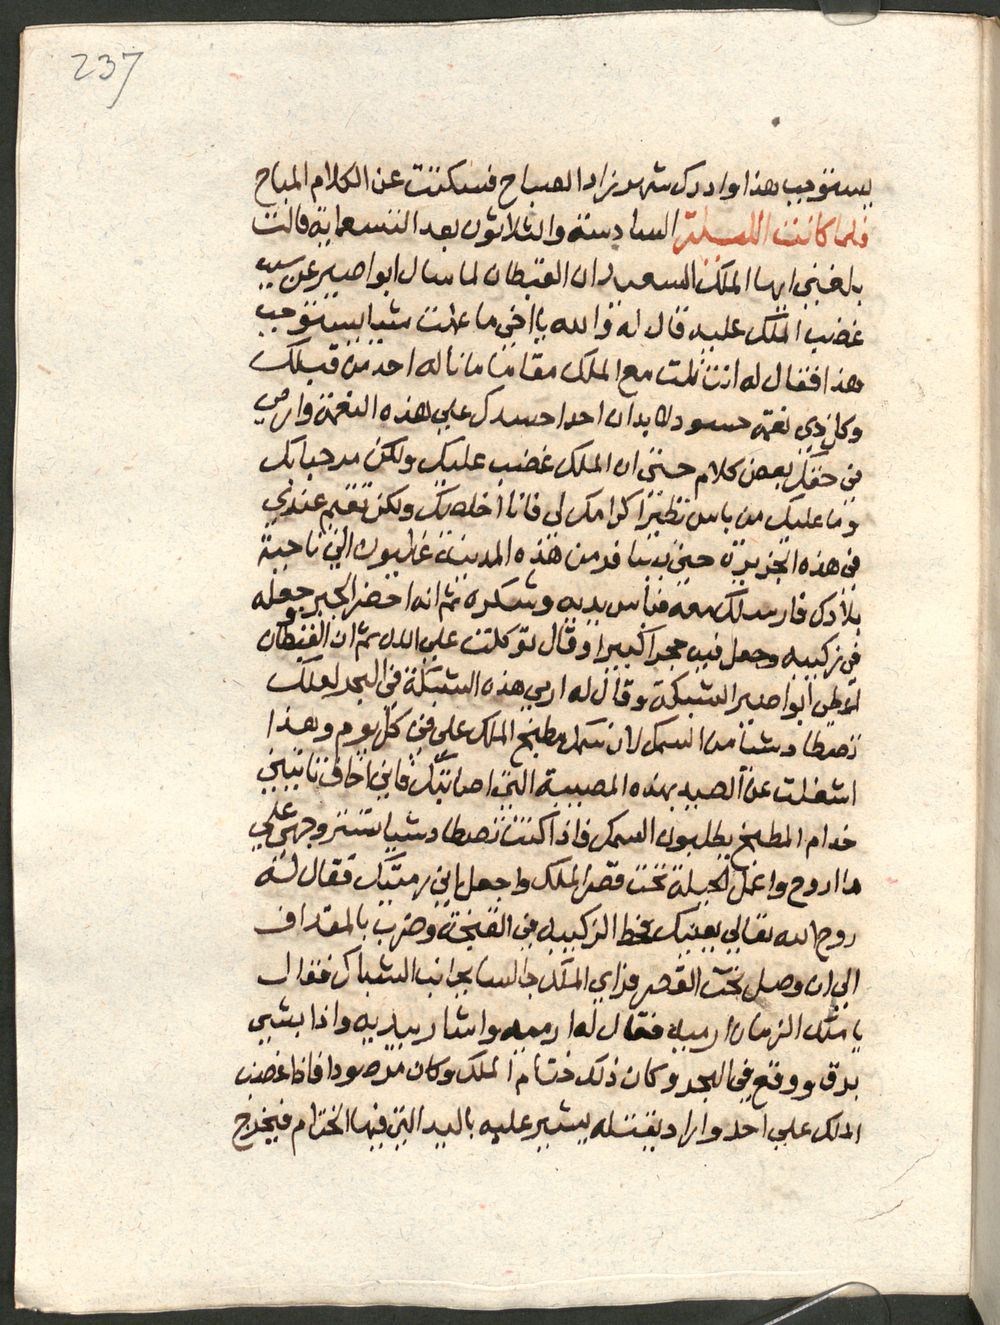 237
يستوجب هذا وادرك شهرزاد الصباح فسكتت عن الكلام المباح
فلما كانت الليلة السادسة والثلاثون بعد التسعماية قالت
بلغني ايها الملك السعيد ان القبطان لما سال ابو اصير عن سبب
غضب الملك عليه قال له والله يا اخي ما عملت شيا يستوجب
هذا فقال له انت نلت مع الملك مقاما ما ناله احد من قبلك
وكل ذي نعمة حسود لابد ان احدا حسدك علي هذه النعمة وارمي
في حقك بعض كلام حتي ان الملك غضب عليك ولكن مرحبا بك
وما عليك من باس نظير اكرامك لي فانا اخلصك ولكن تقيم عندي
في هذه الجزيرة حتي يسافر من هذه المدينة غليون الي ناحية
بلادك فارسلك معه فباس يديه وشكره ثم انه احضر الجير وجعله
في زكيبه وجعل فيه حجرا كبيرا وقال توكلت علي الله ثم ان القبطان
اعطي ابوا صير الشبكة وقال له ارمي هذه الشبكة في البحر لعلك
تصطاد شيا من السمك لان سمك مطبخ الملك علي في كل يوم وهذا
اشغلت عن الصيد بهذه المصيبة التي اصابتك فاني اخاف تاتيني
خدام المطبخ يطلبون السمك فاذا كنت تصطاد شيا تستر وجهي علي
ما اروح واعمل الحيلة تحت قصر الملك واجعل اني رميتك فقال له
روح الله تعالي يعينك فحط الزكيبه في الفنجة وضرب بالمقداف
الي ان وصل تحت القصر فراي الملك جالسا بجانب الشباك فقال
يا ملك الزمان ارميه فقال له ارميه واشار بيديه واذا بشي
برق ووقع في البحر وكان ذلك ختام الملك وكان مرصودا فاذا غضب
الملك علي احد واراد يقتله يشير عليه باليد التي فيها الختام فيخرج